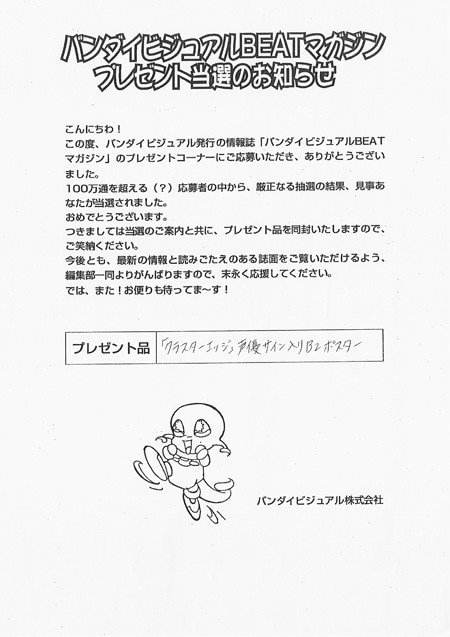 バンダイビジュアルBEATマガジン
プレゼント当選のお知らせ
こんにちわ！
この度、バンダイビジュアル発行の情報誌「バンダイビジュアルBEAT
マガジン」のプレゼントコーナーにご応募いただき、ありがとうござい
ました。
100万通を超える（？）応募者の中から、厳正なる抽選の結果、見事あ
なたが当選されました。
おめでとうございます。
つきましては当選のご案内と共に、プレゼント品を同封いたしますので、
ご笑納ください。
今後とも、最新の情報と読みごたえのある誌面をご覧いただけるよう、
編集部一同よりがんばりますので、末永く応援してください。
では、また！お便りも待ってま〜す！
プレゼント品
「クラスターエッジ」声優サイン入りB2ポスター
バンダイビジュアル株式会社